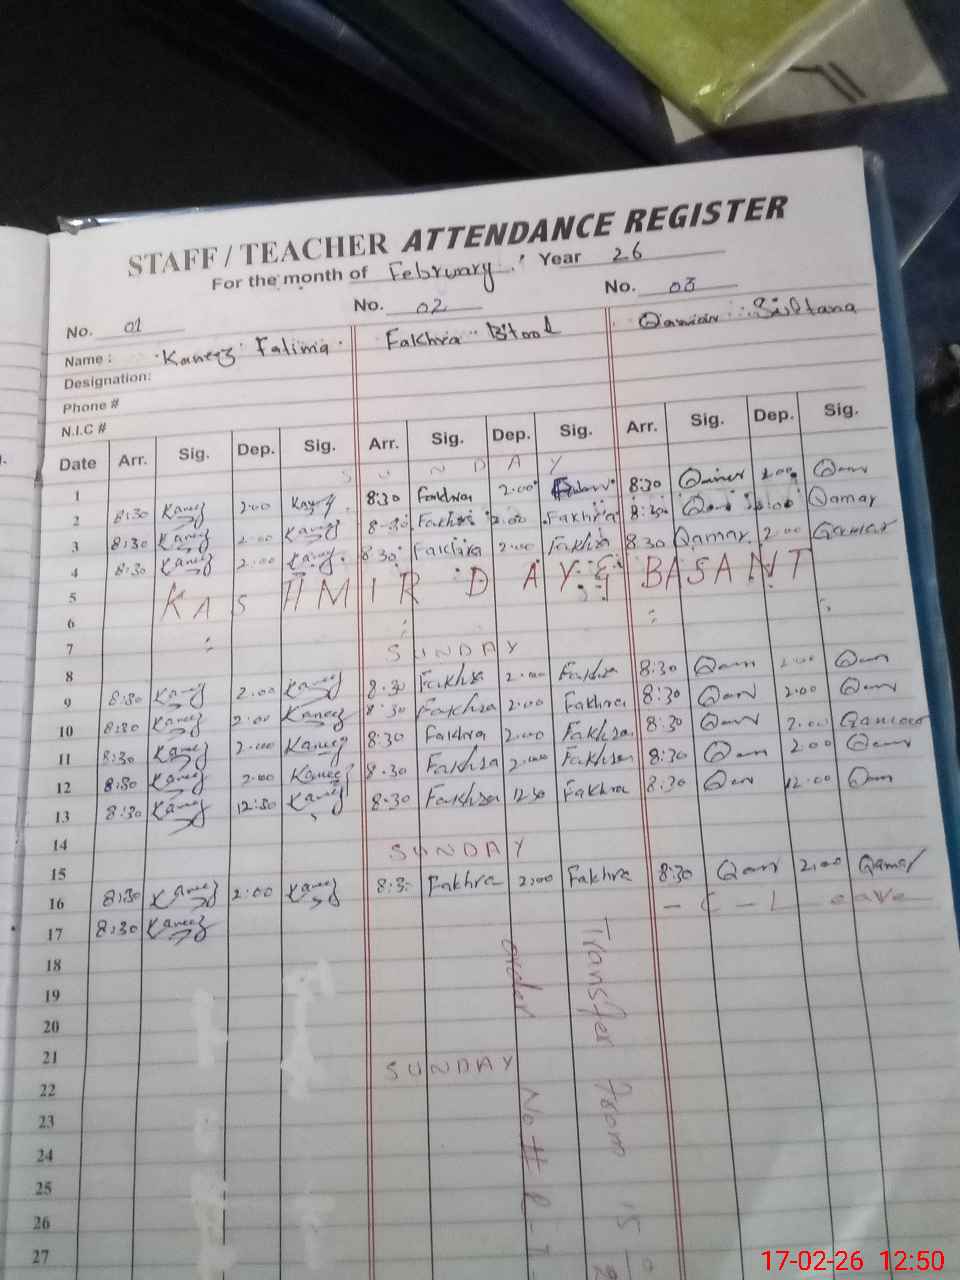 STAFF / TEACHER ATTENDANCE REGISTER
For the month of February Year 26
No. 01 No. 02 No. 03
Name : Kaneez Fatima Fakhra Btool Sultana
Designation:
Phone #
N.I.C #
Date Arr. Sig. Dep. Sig. Arr. Sig. Dep. Sig. Arr. Sig. Dep. Sig.
1 SUNDAY
2 8:30 Kaneez 2:00 Kaneez 8:30 Fakhra 2:00 8:30 2:00
3 8:30 Kaneez 2:00 Kaneez 8:30 Fakhra 2:00 Fakhra 8:30 Qamar
4 8:30 Kaneez 2:00 Kaneez 8:30 Fakhra 2:00 Fakhra 8:30 Qamar 2:00
5 KASHMIR DAY & BASANT
6
7
8 SUNDAY
9 8:30 Kaneez 2:00 Kaneez 8:30 Fakhra 2:00 Fakhra 8:30 2:00
10 8:30 Kaneez 2:00 Kaneez 8:30 Fakhra 2:00 Fakhra 8:30 2:00
11 8:30 Kaneez 2:00 Kaneez 8:30 Fakhra 2:00 Fakhra 8:30 2:00
12 8:30 Kaneez 2:00 Kaneez 8:30 Fakhra 2:00 Fakhra 8:30 2:00
13 8:30 Kaneez 12:30 Kaneez 8:30 Fakhra 12:30 Fakhra 8:30 12:00
14
15 SUNDAY
16 8:30 Kaneez 2:00 Kaneez 8:30 Fakhra 2:00 Fakhra 8:30 2:00 Qamar
17 8:30 Kaneez - C - L eave
18
19
20
21
22 SUNDAY
23
24
25
26
27
Transfer from 15
order No #
17-02-26 12:50